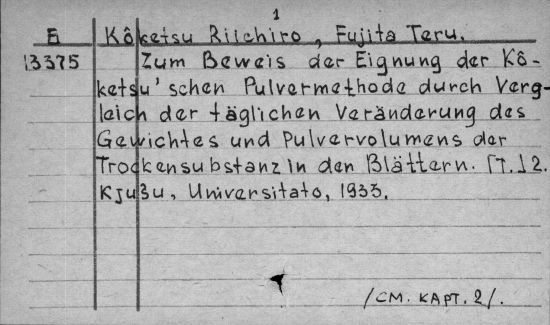 1
Б Kôketsu Riichiro, Fujita Teru.
13375 Zum Beweis der Eignung der Kô-
ketsu'schen Pulvermethode durch Verg-
leich der täglichen Veränderung des
Gewichtes und Pulvervolumens der
Trockensubstanz in den Blättern. [T.] 2.
Kjußu, Universitato, 1933.
/СМ. КАРТ. 2/.